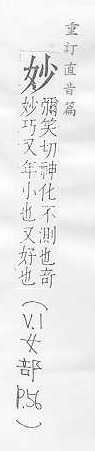 重訂直音篇
妙
彌笑切神化不測也竒
妙巧又年小也又好也
(V.1女部 P.56)